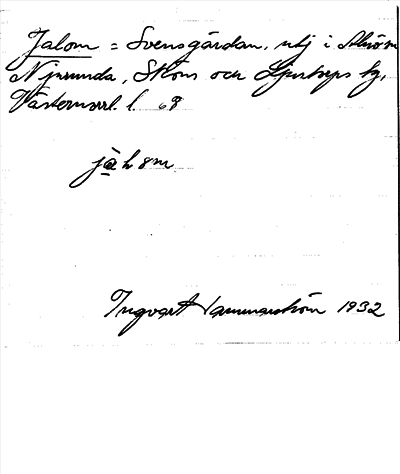 Jalom = Svensgårdan, utj i Alnöm
Njurunda, Sköns och Ljustorps tg,
Västernorrl. l. 68
jàlom
Ingvart Hammarström 1932